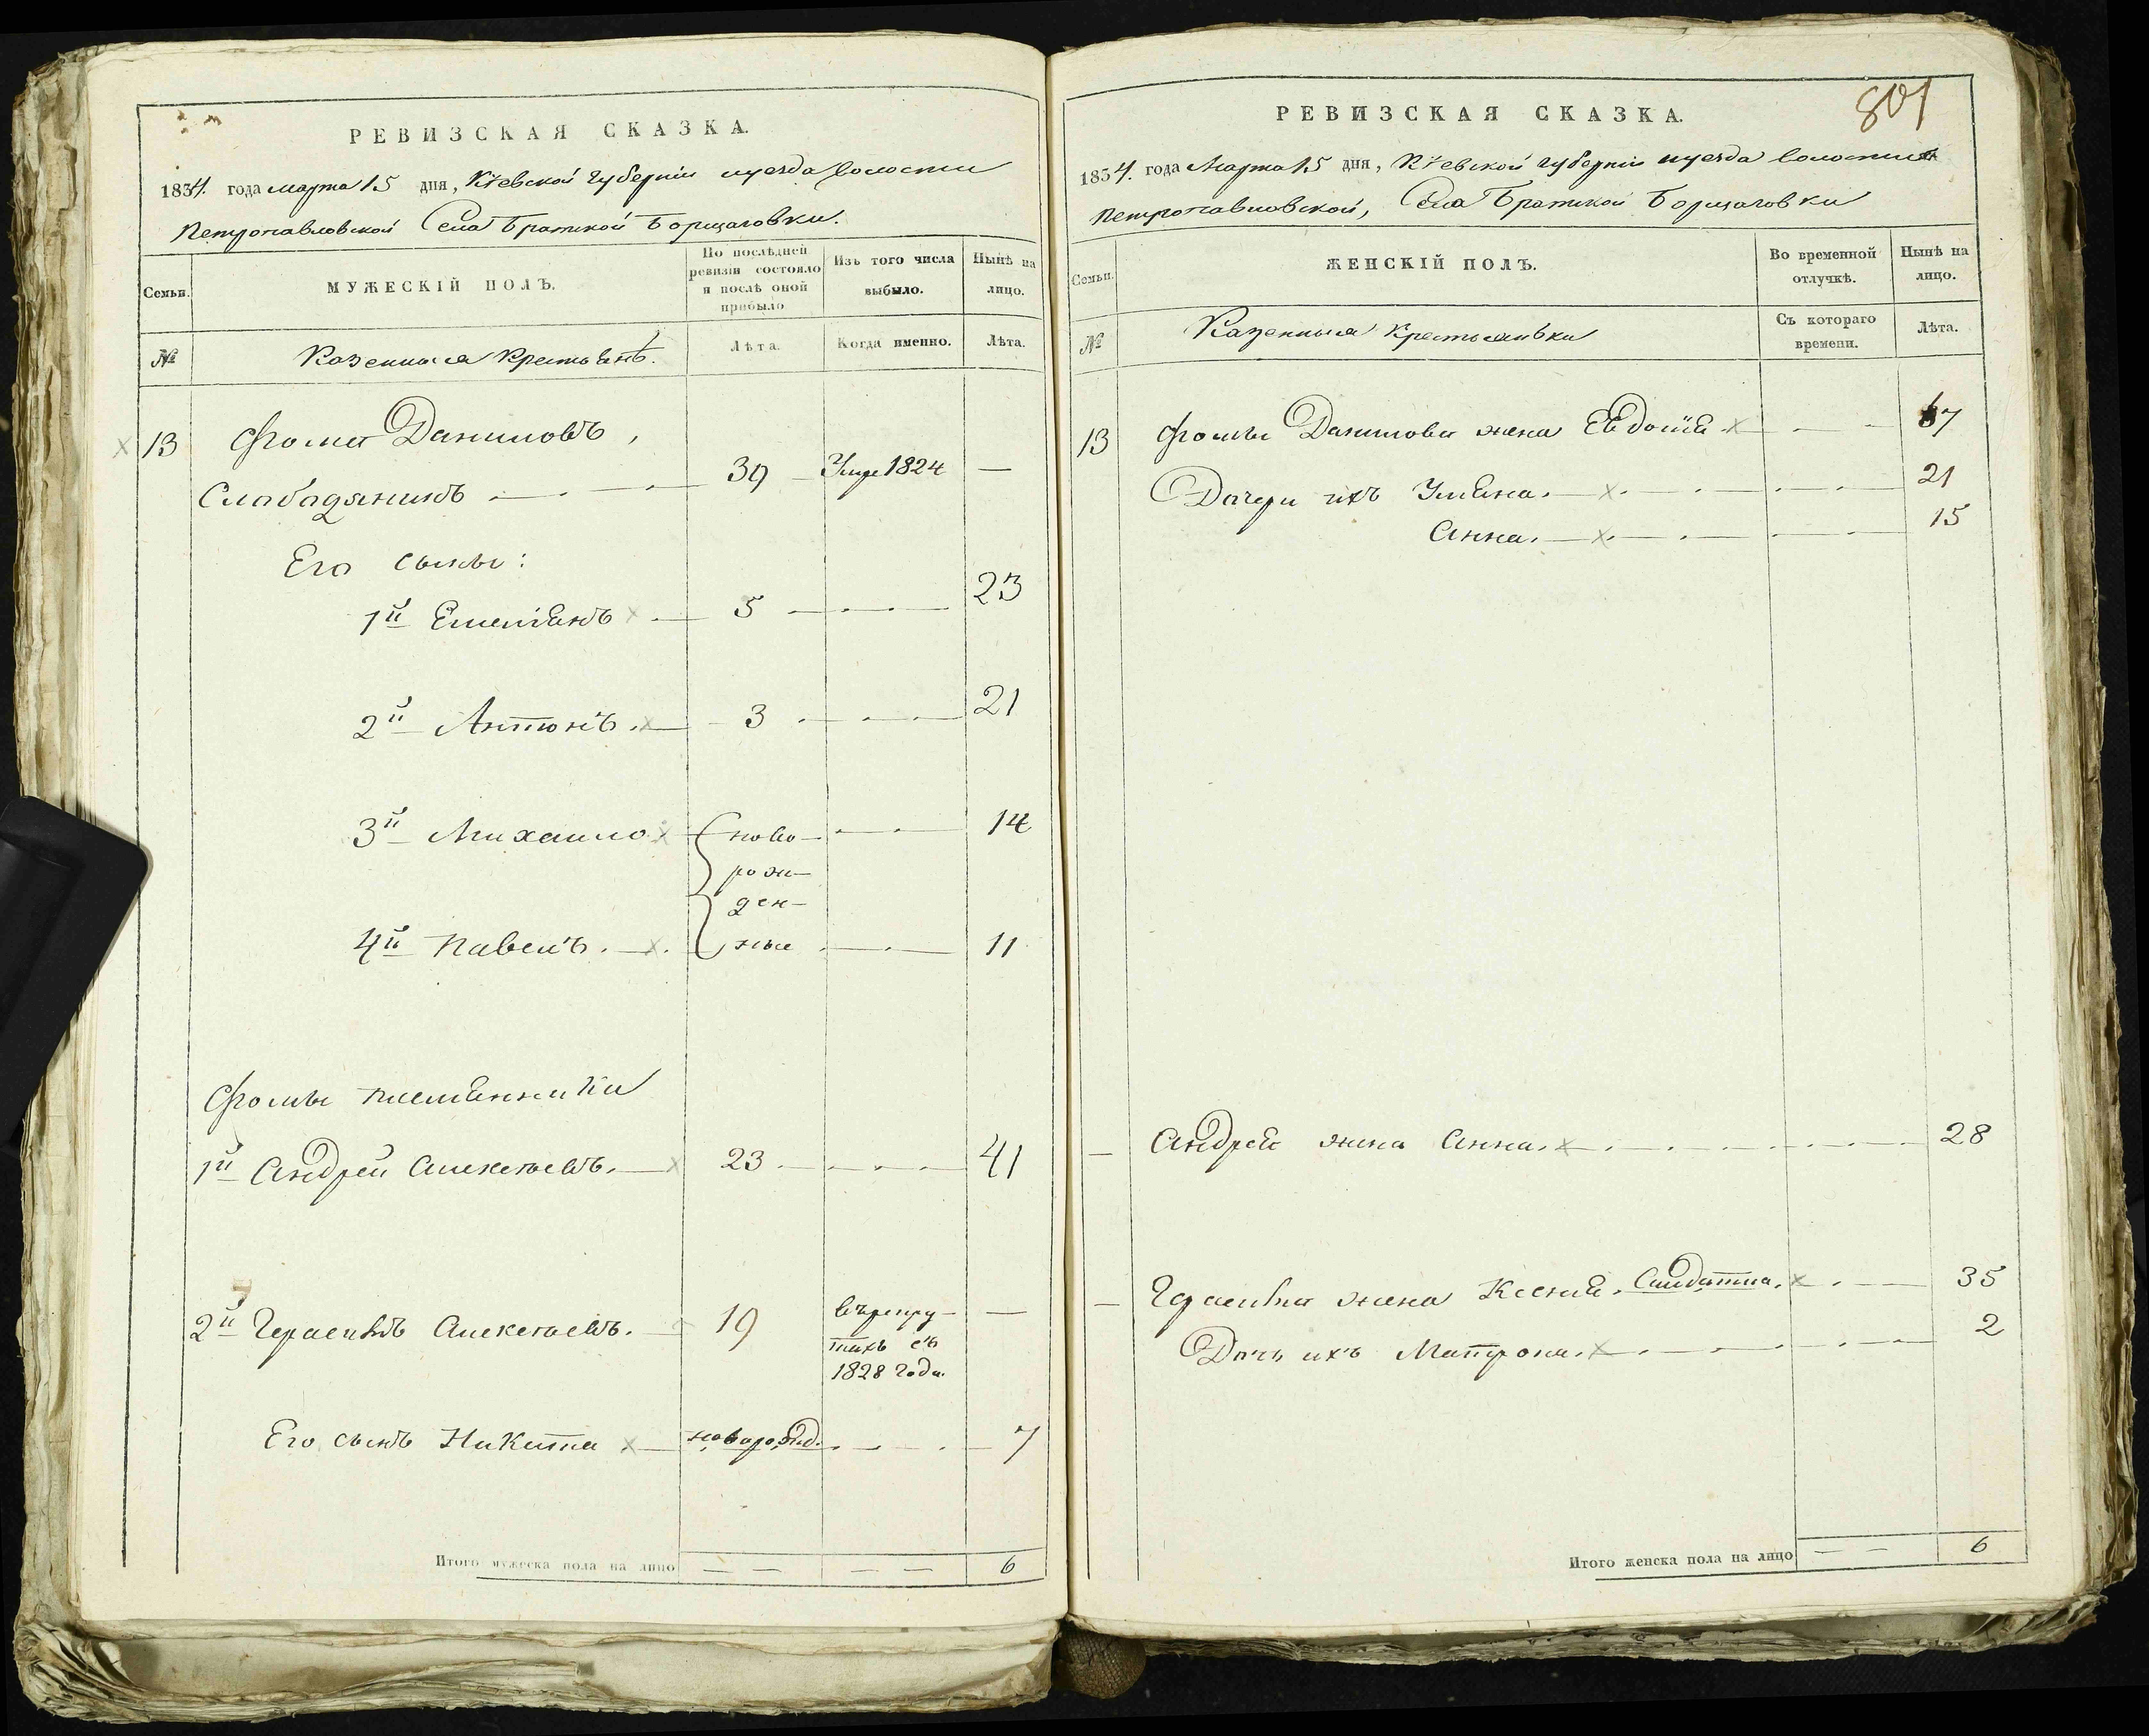 РЕВИЗСКАЯ СКАЗКА.
1834. года марта 15 дня, Кіевской губерніи и уезда волости
Петропавловской Села Братской Борщаговки.
Семьи.
МУЖЕСКІЙ ПОЛЪ.
По послѣдней ревизіи состояло и послѣ оной прибыло
Изъ того числа выбыло.
Нынѣ на лицо.
№
Казенныя Крестьянѣ.
Лѣта.
Когда именно.
Лѣта.
13 Фома Даниловъ,
Слабадяникъ 39 Умре 1824 —
Его сыны:
1й Емеліянъ 5 23
2й Антонъ 3 21
3й Михаило ново- 14
рож-
ден-
4й Павелъ ные 11
Фомы племянники
1й Андрей Алексѣевъ 23 41
2й Герасимъ Алексѣевъ. 19 въ рекру- —
тахъ съ
1828 года.
Его сынъ Никита новорожд. 7
Итого мужеска пола на лицо — — — — 6
РЕВИЗСКАЯ СКАЗКА.
801
1834. года Марта 15 дня, Кіевской губерніи и уезда волости
Петропавловской, Села Братской Борщаговки
Семьи.
ЖЕНСКІЙ ПОЛЪ.
Во временной отлучкѣ.
Нынѣ на лицо.
№
Казенныя Крестьянки
Съ котораго времени.
Лѣта.
13 Фомы Данилова жена Евдокія 67
Дочери ихъ Уляна. 21
Анна. 15
— Андрея жена Анна. 28
— Герасима жена Ксенія. Салдатка. 35
Дочь ихъ Матрона. 2
Итого женска пола на лицо — — 6